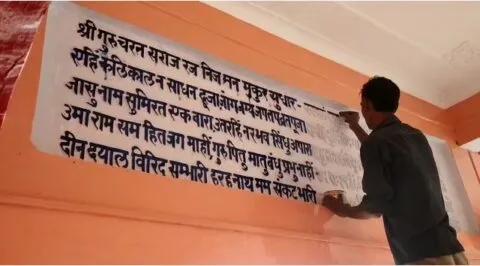 श्री गुरु चरन सराज रज निज मन मुकुर सुधार -
एहिं कलिकाल न साधन दूजा जोग न यज्ञ जप तप व्रत पूजा
जासु नाम सुमिरत एक बारा, उतरहिं नर भव सिंधु अपारा
उमा राम सम हित जग माहीं गुरु पितु मातु बंधु प्रभु नाहीं -
दीन दयाल विरिद सम्भारी हरहु नाथ मम संकट भारी